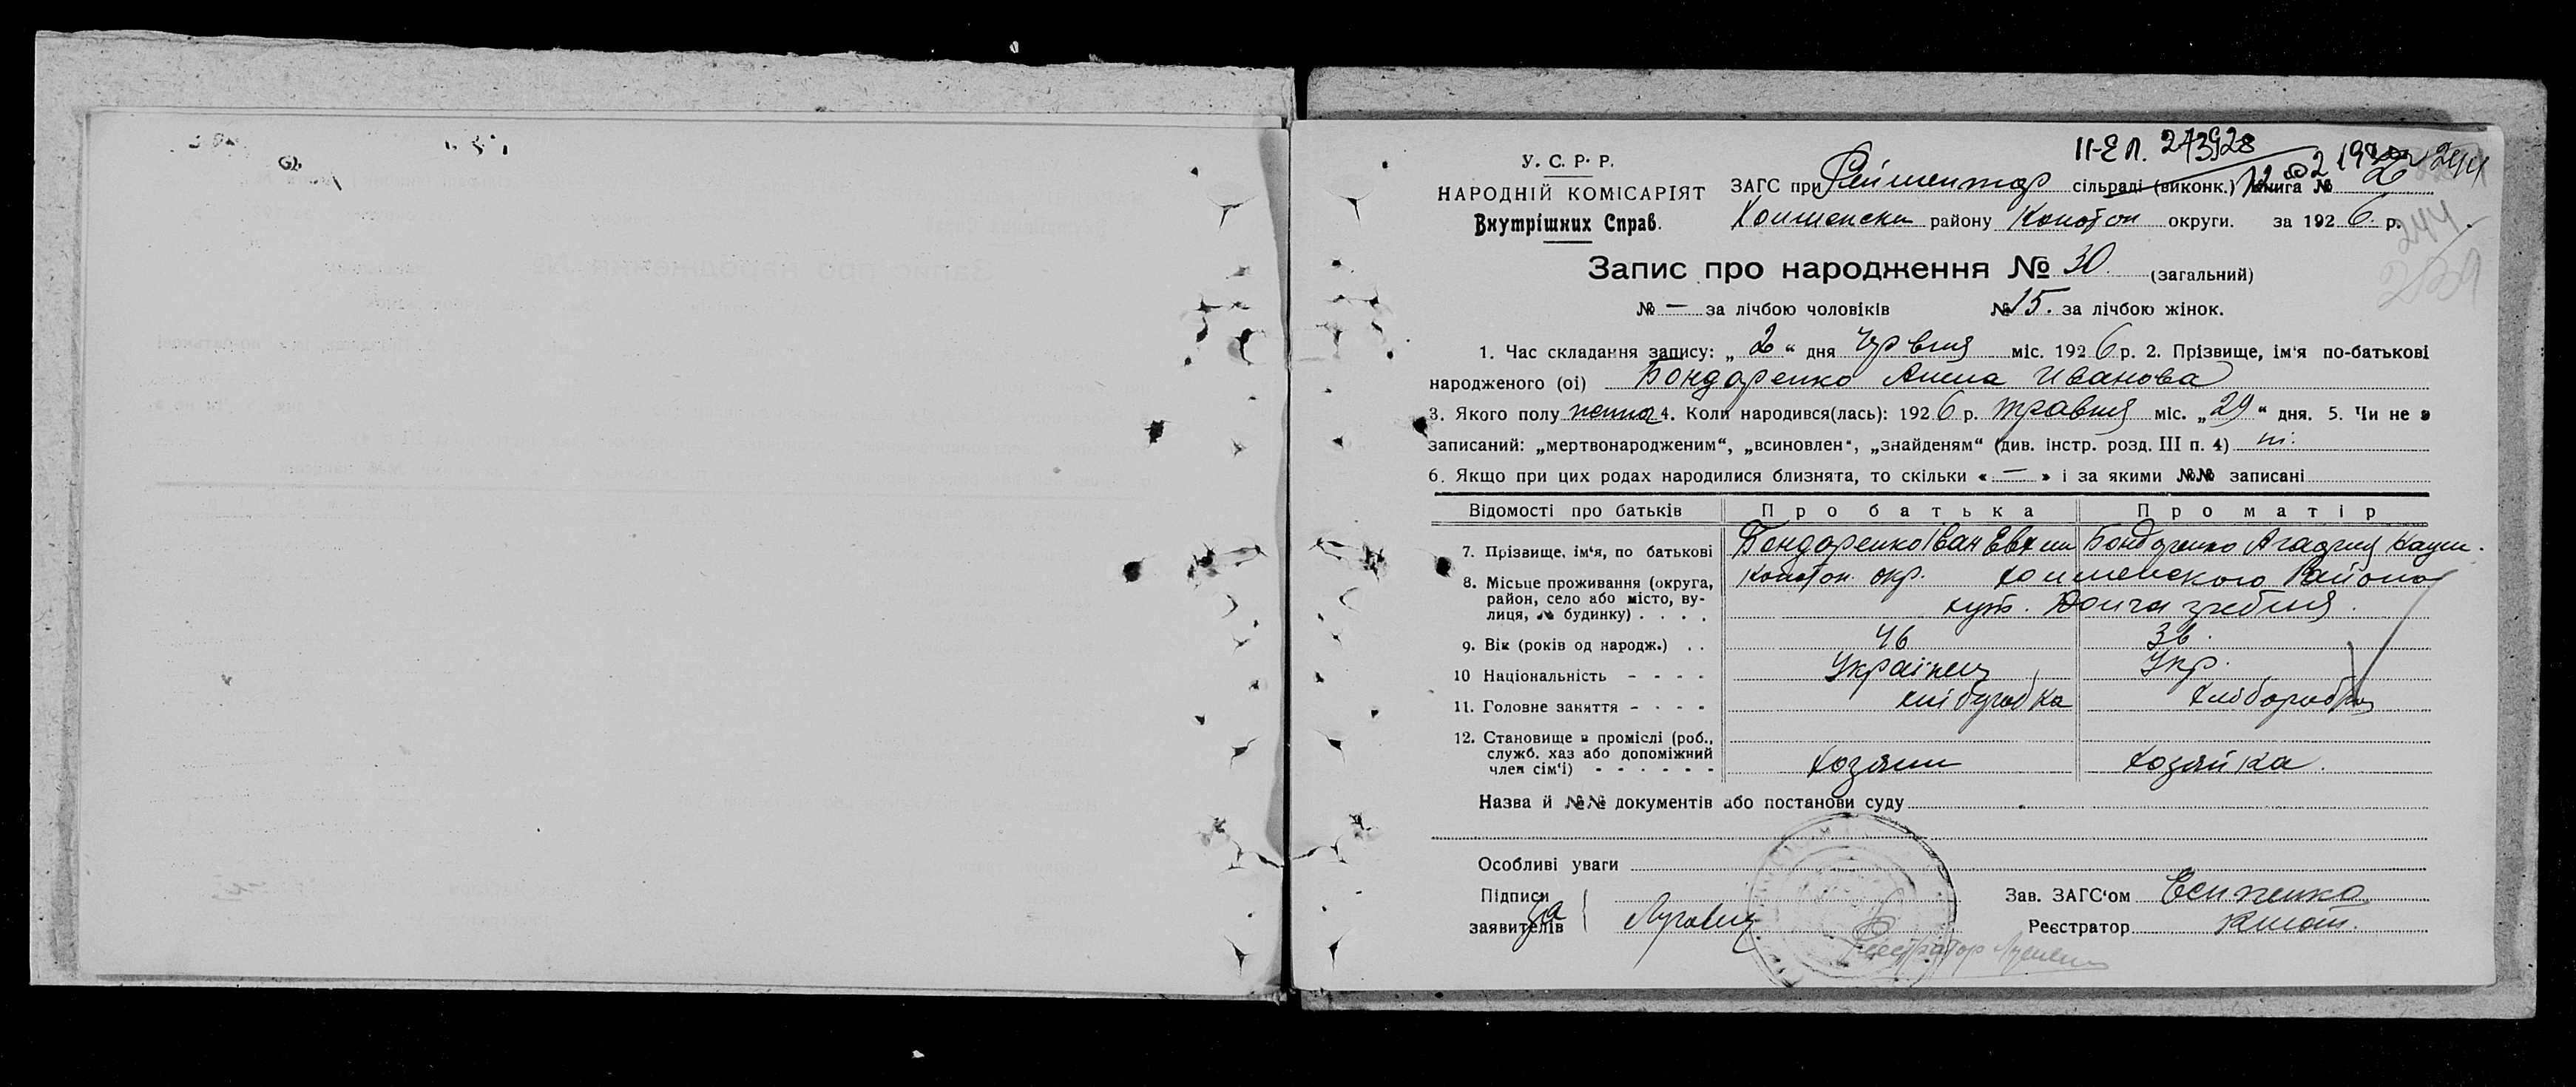 II-ЕП. 273928
У. С. Р. Р.
НАРОДНІЙ КОМІСАРІЯТ
Внутрішних Справ.
ЗАГС при сільраді (виконк.) Книга № 2 244
району Конотоп округи. за 1926 р.
244
Запис про народження № 30. (загальний)
№ — за лічбою чоловіків № 15. за лічбою жінок.
1. Час складання запису: „ 2 “ дня Червня міс. 1926 р. 2. Прізвище, ім'я по-батькові
народженого (ої) Бондаренко Анна Иванова
3. Якого полу 4. Коли народився(лась): 1926 р. травня міс. „ 29 “ дня. 5. Чи не є
записаний: „мертвонародженим“, „всиновлен“, „знайденям“ (див. інстр. розд. III п. 4) ні.
6. Якщо при цих родах народилися близнята, то скільки « — » і за якими №№ записані
Відомості про батьків Про батька Про матір
7. Прізвище, ім'я, по батькові Бондаренко Іван Бондаренко
8. Місьце проживання (округа, район, село або місто, вулиця, № будинку) Конотоп. окр. Района
хут.
9. Вік (років од народж.) 46 36.
10 Національність Українец Укр.
11. Головне заняття
12. Становище в промислі (роб., служб. хаз або допоміжний член сім'ї) Хозяин Хозяйка.
Назва й №№ документів або постанови суду
Особливі уваги
Підписи
заявителів
Зав. ЗАГС'ом Есипенко
Реєстратор
Реєстратор